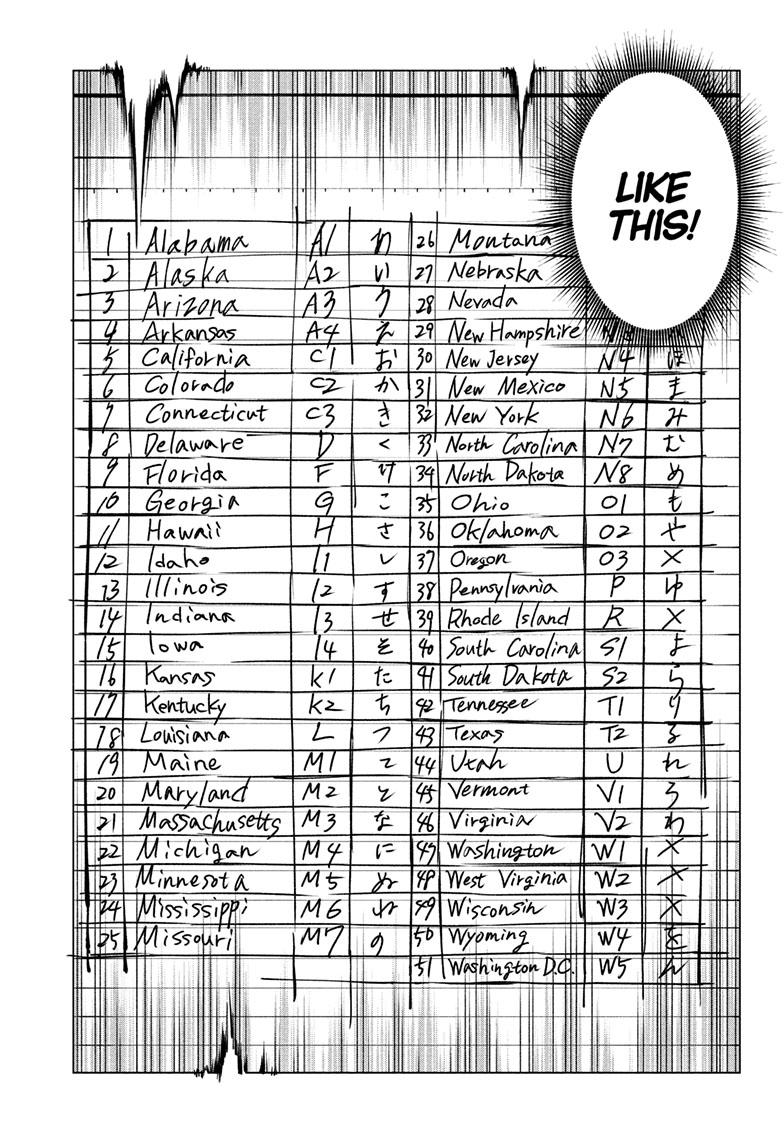 LIKE
THIS!
1 Alabama A1 あ 26 Montana
2 Alaska A2 い 27 Nebraska
3 Arizona A3 う 28 Nevada
4 Arkansas A4 え 29 New Hampshire
5 California C1 お 30 New Jersey N4 ほ
6 Colorado C2 か 31 New Mexico N5 ま
7 Connecticut C3 き 32 New York N6 み
8 Delaware D く 33 North Carolina N7 む
9 Florida F け 34 North Dakota N8 め
10 Georgia G こ 35 Ohio O1 も
11 Hawaii H さ 36 Oklahoma O2 や
12 Idaho I1 し 37 Oregon O3 X
13 Illinois I2 す 38 Pennsylvania P ゆ
14 Indiana I3 せ 39 Rhode Island R X
15 Iowa I4 そ 40 South Carolina S1 よ
16 Kansas K1 た 41 South Dakota S2 ら
17 Kentucky K2 ち 42 Tennessee T1 り
18 Louisiana L つ 43 Texas T2 る
19 Maine M1 て 44 Utah U れ
20 Maryland M2 と 45 Vermont V1 ろ
21 Massachusetts M3 な 46 Virginia V2 わ
22 Michigan M4 に 47 Washington W1 X
23 Minnesota M5 ぬ 48 West Virginia W2 X
24 Mississippi M6 ね 49 Wisconsin W3 X
25 Missouri M7 の 50 Wyoming W4 を
51 Washington D.C. W5 ん